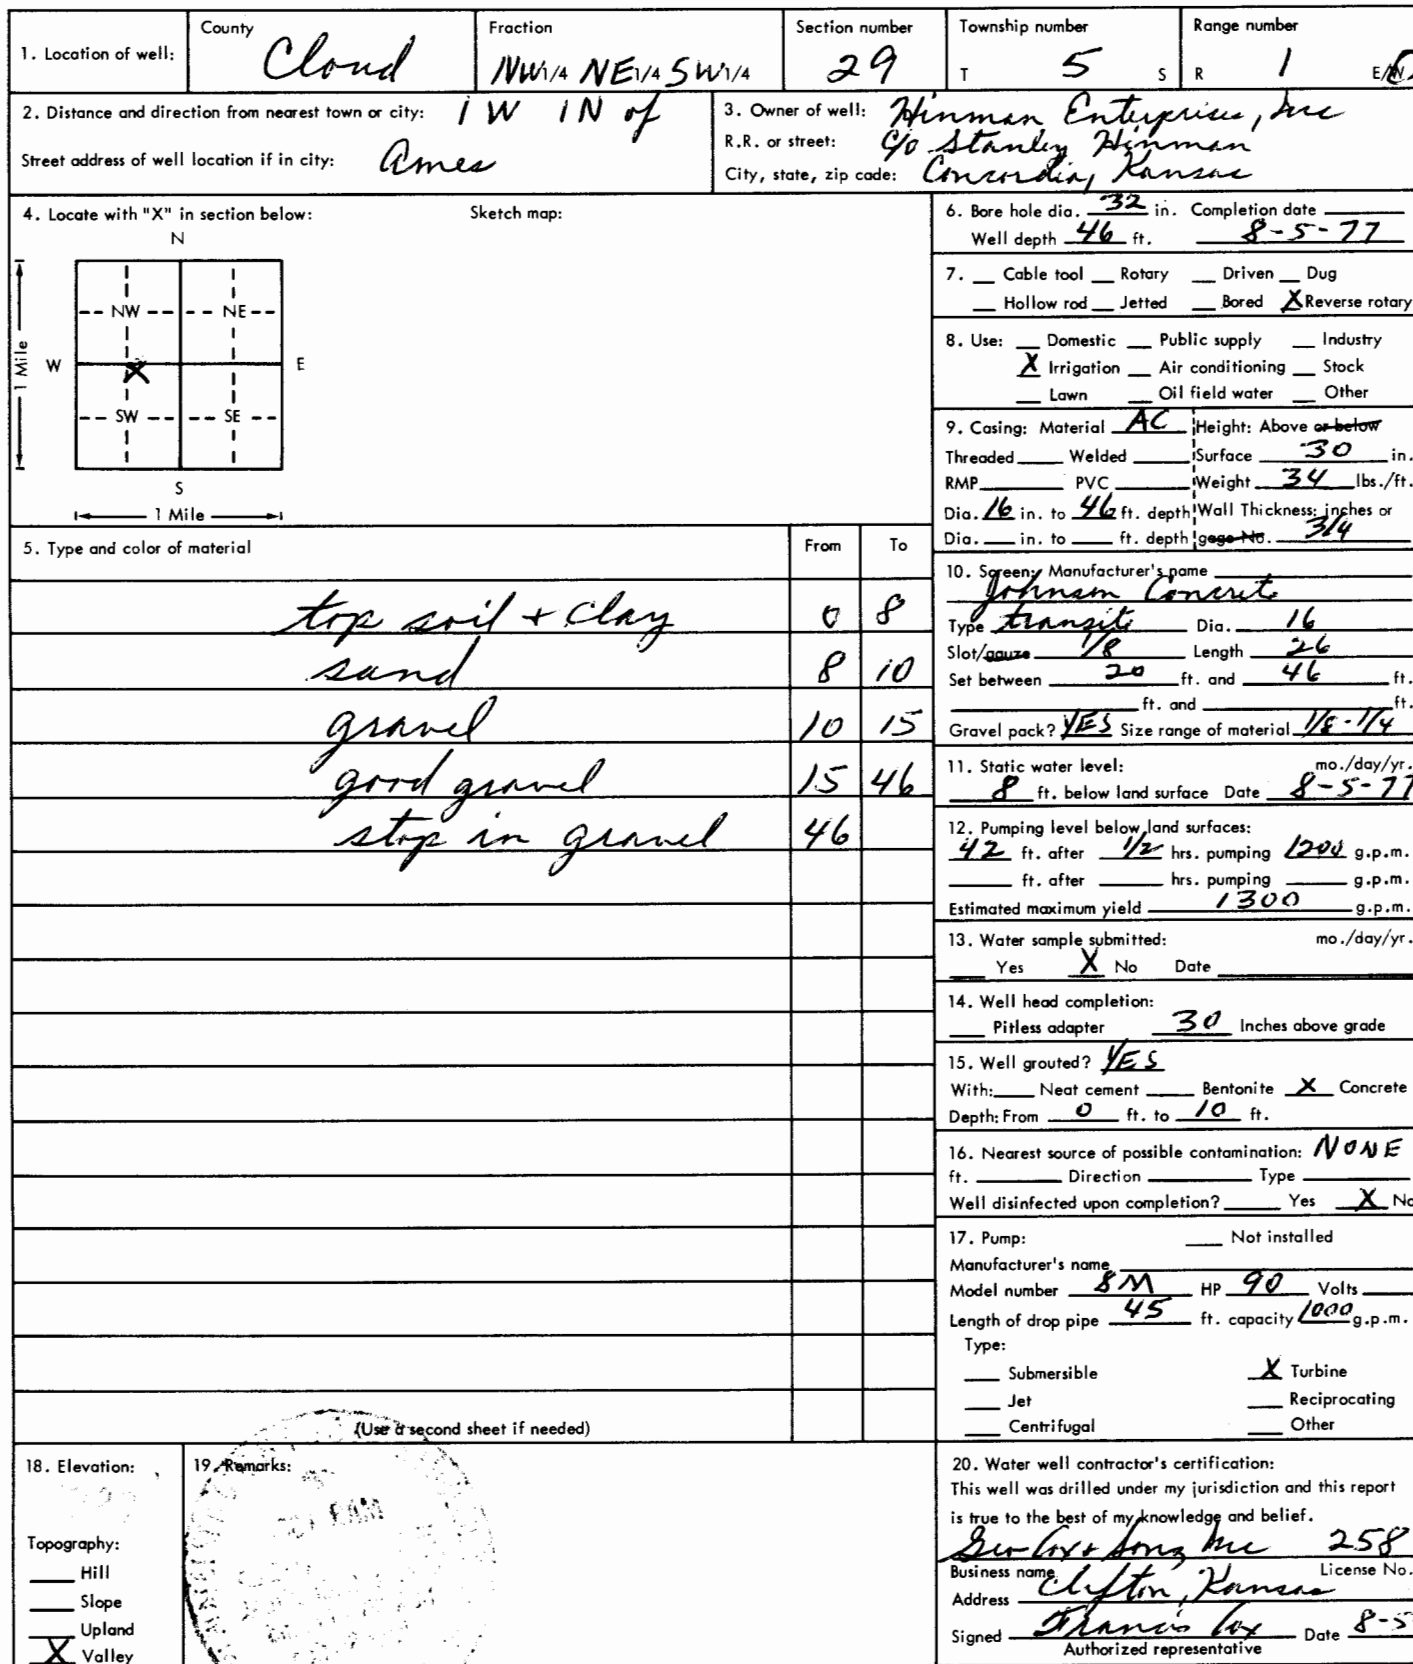 1. Location of well: County Cloud Fraction NW1/4 NE1/4 SW1/4 Section number 29 Township number T 5 S Range number R 1 E/W
2. Distance and direction from nearest town or city: 1 W 1 N of
Street address of well location if in city: Ames
3. Owner of well: Hinman Enterprises, Inc
R.R. or street: C/o Stanley Hinman
City, state, zip code: Concordia, Kansas
4. Locate with "X" in section below: Sketch map:
N
NW NE
1 Mile W X E
SW SE
S
1 Mile
5. Type and color of material From To
top soil + clay 0 8
sand 8 10
gravel 10 15
good gravel 15 46
stop in gravel 46
(Use a second sheet if needed)
6. Bore hole dia. 32 in. Completion date
Well depth 46 ft. 8-5-77
7. Cable tool Rotary Driven Dug
Hollow rod Jetted Bored X Reverse rotary
8. Use: Domestic Public supply Industry
X Irrigation Air conditioning Stock
Lawn Oil field water Other
9. Casing: Material AC Height: Above or below
Threaded Welded Surface 30 in.
RMP PVC Weight 34 lbs./ft.
Dia. 16 in. to 46 ft. depth Wall Thickness: inches or
Dia. in. to ft. depth gage No. 3/4
10. Screen: Manufacturer's name
Johnson Concrete
Type transite Dia. 16
Slot/gauze 1/8 Length 26
Set between 20 ft. and 46 ft.
ft. and ft.
Gravel pack? YES Size range of material 1/8-1/4
11. Static water level: mo./day/yr.
8 ft. below land surface Date 8-5-77
12. Pumping level below land surfaces:
42 ft. after 1/2 hrs. pumping 1200 g.p.m.
ft. after hrs. pumping g.p.m.
Estimated maximum yield 1300 g.p.m.
13. Water sample submitted: mo./day/yr.
Yes X No Date
14. Well head completion:
Pitless adapter 30 Inches above grade
15. Well grouted? YES
With: Neat cement Bentonite X Concrete
Depth: From 0 ft. to 10 ft.
16. Nearest source of possible contamination: NONE
ft. Direction Type
Well disinfected upon completion? Yes X No
17. Pump: Not installed
Manufacturer's name
Model number 8M HP 90 Volts
Length of drop pipe 45 ft. capacity 1000 g.p.m.
Type:
Submersible X Turbine
Jet Reciprocating
Centrifugal Other
18. Elevation:
Topography:
Hill
Slope
Upland
X Valley
19. Remarks:
20. Water well contractor's certification:
This well was drilled under my jurisdiction and this report
is true to the best of my knowledge and belief.
Geo Cox & Sons, Inc 258
Business name License No.
Address Clifton, Kansas
Signed Francis Cox Date 8-5
Authorized representative